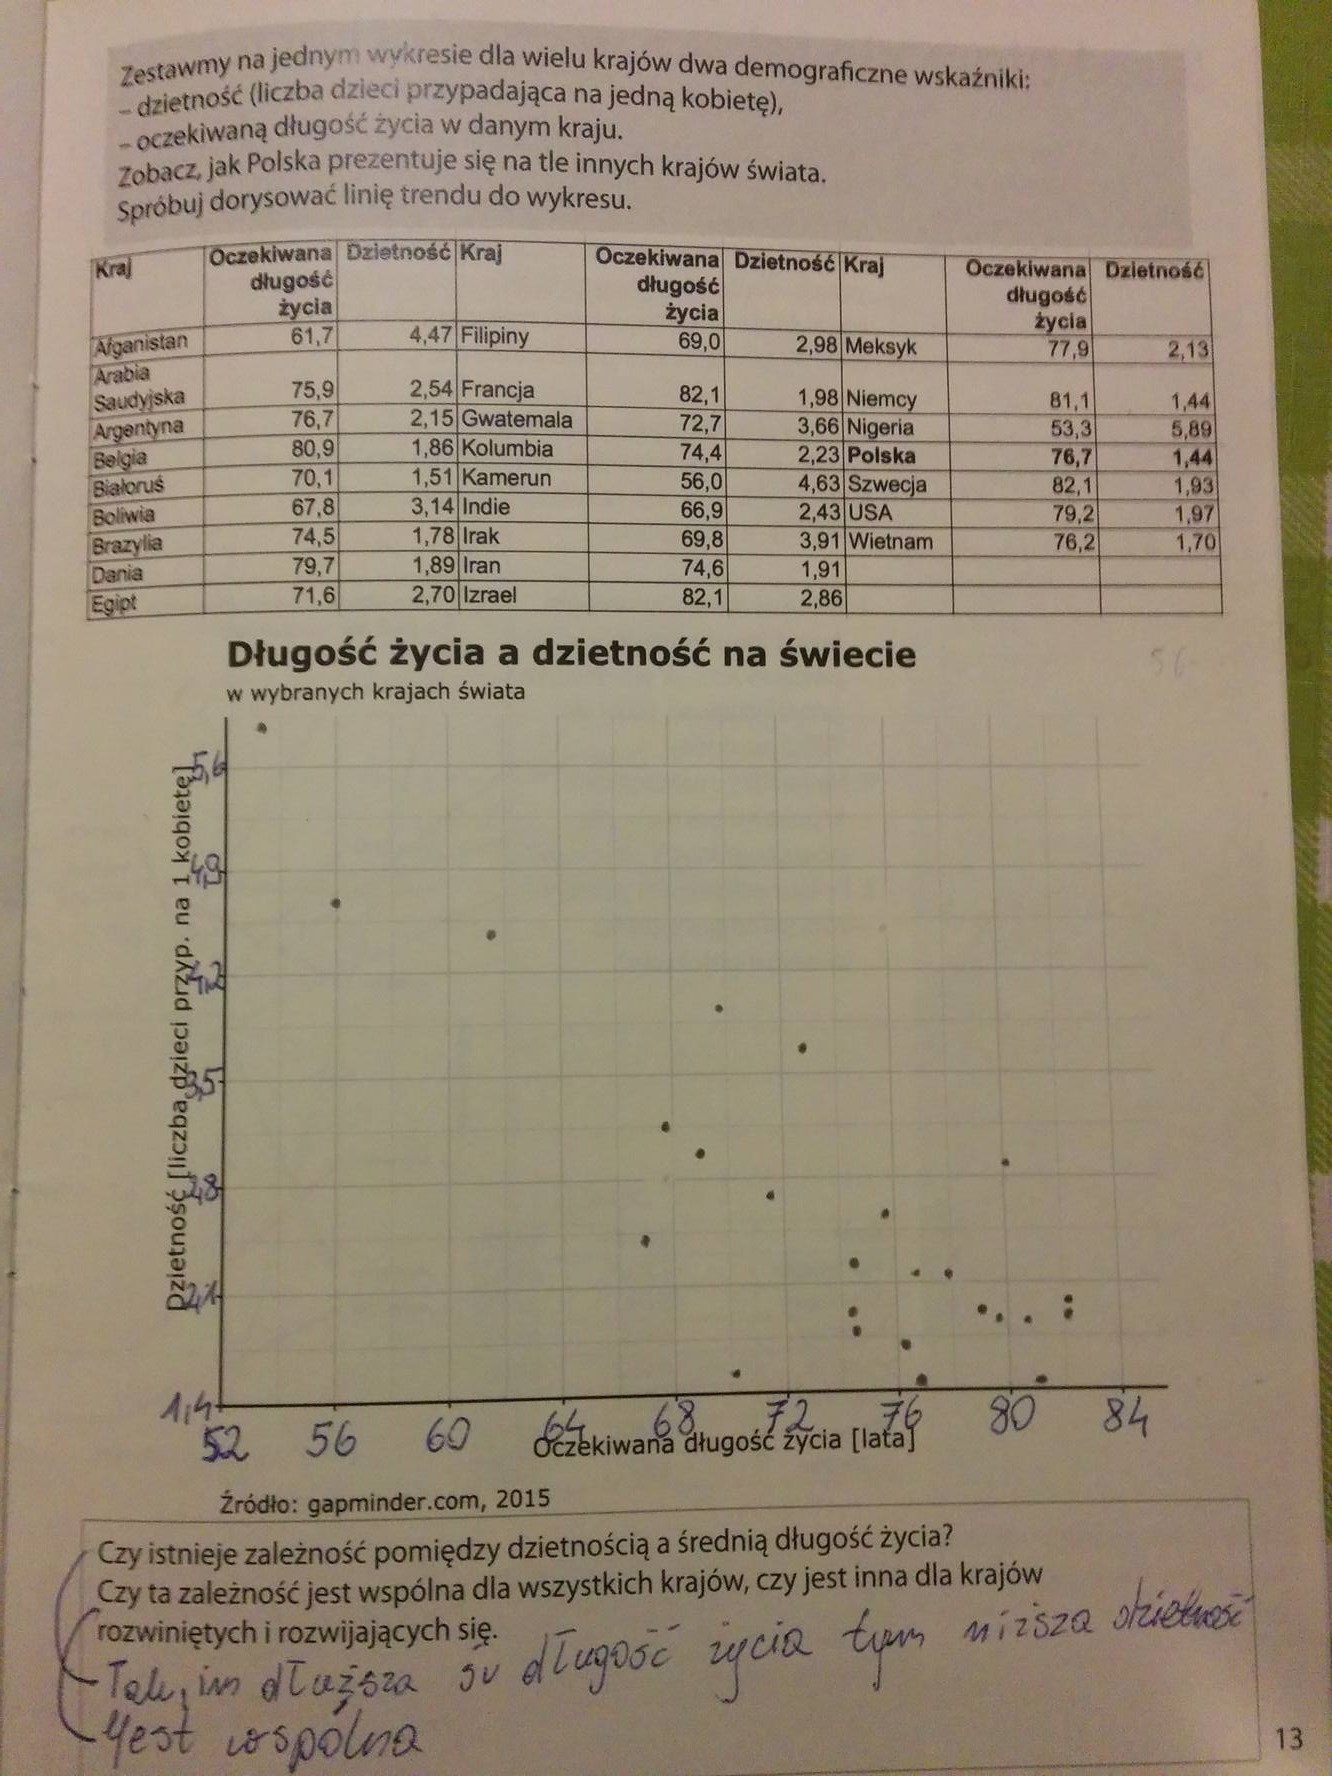 Zestawmy na jednym wykresie dla wielu krajów dwa demograficzne wskaźniki:
– dzietność (liczba dzieci przypadająca na jedną kobietę),
– oczekiwaną długość życia w danym kraju.
Zobacz, jak Polska prezentuje się na tle innych krajów świata.
Spróbuj dorysować linię trendu do wykresu.
Kraj Oczekiwana długość życia Dzietność Kraj Oczekiwana długość życia Dzietność Kraj Oczekiwana długość życia Dzietność
Afganistan 61,7 4,47 Filipiny 69,0 2,98 Meksyk 77,9 2,13
Arabia Saudyjska 75,9 2,54 Francja 82,1 1,98 Niemcy 81,1 1,44
Argentyna 76,7 2,15 Gwatemala 72,7 3,66 Nigeria 53,3 5,89
Belgia 80,9 1,86 Kolumbia 74,4 2,23 Polska 76,7 1,44
Białoruś 70,1 1,51 Kamerun 56,0 4,63 Szwecja 82,1 1,93
Boliwia 67,8 3,14 Indie 66,9 2,43 USA 79,2 1,97
Brazylia 74,5 1,78 Irak 69,8 3,91 Wietnam 76,2 1,70
Dania 79,7 1,89 Iran 74,6 1,91
Egipt 71,6 2,70 Izrael 82,1 2,86
Długość życia a dzietność na świecie
w wybranych krajach świata
56
Dzietność [liczba dzieci przyp. na 1 kobietę]
5,6
4,9
4,2
3,5
2,8
2,1
1,4
52 56 60 64 68 72 76 80 84
Oczekiwana długość życia [lata]
Źródło: gapminder.com, 2015
Czy istnieje zależność pomiędzy dzietnością a średnią długość życia?
Czy ta zależność jest wspólna dla wszystkich krajów, czy jest inna dla krajów
rozwiniętych i rozwijających się.
- Tak, im dłuższa śr długość życia tym niższa dzietność
- Jest wspólna
13